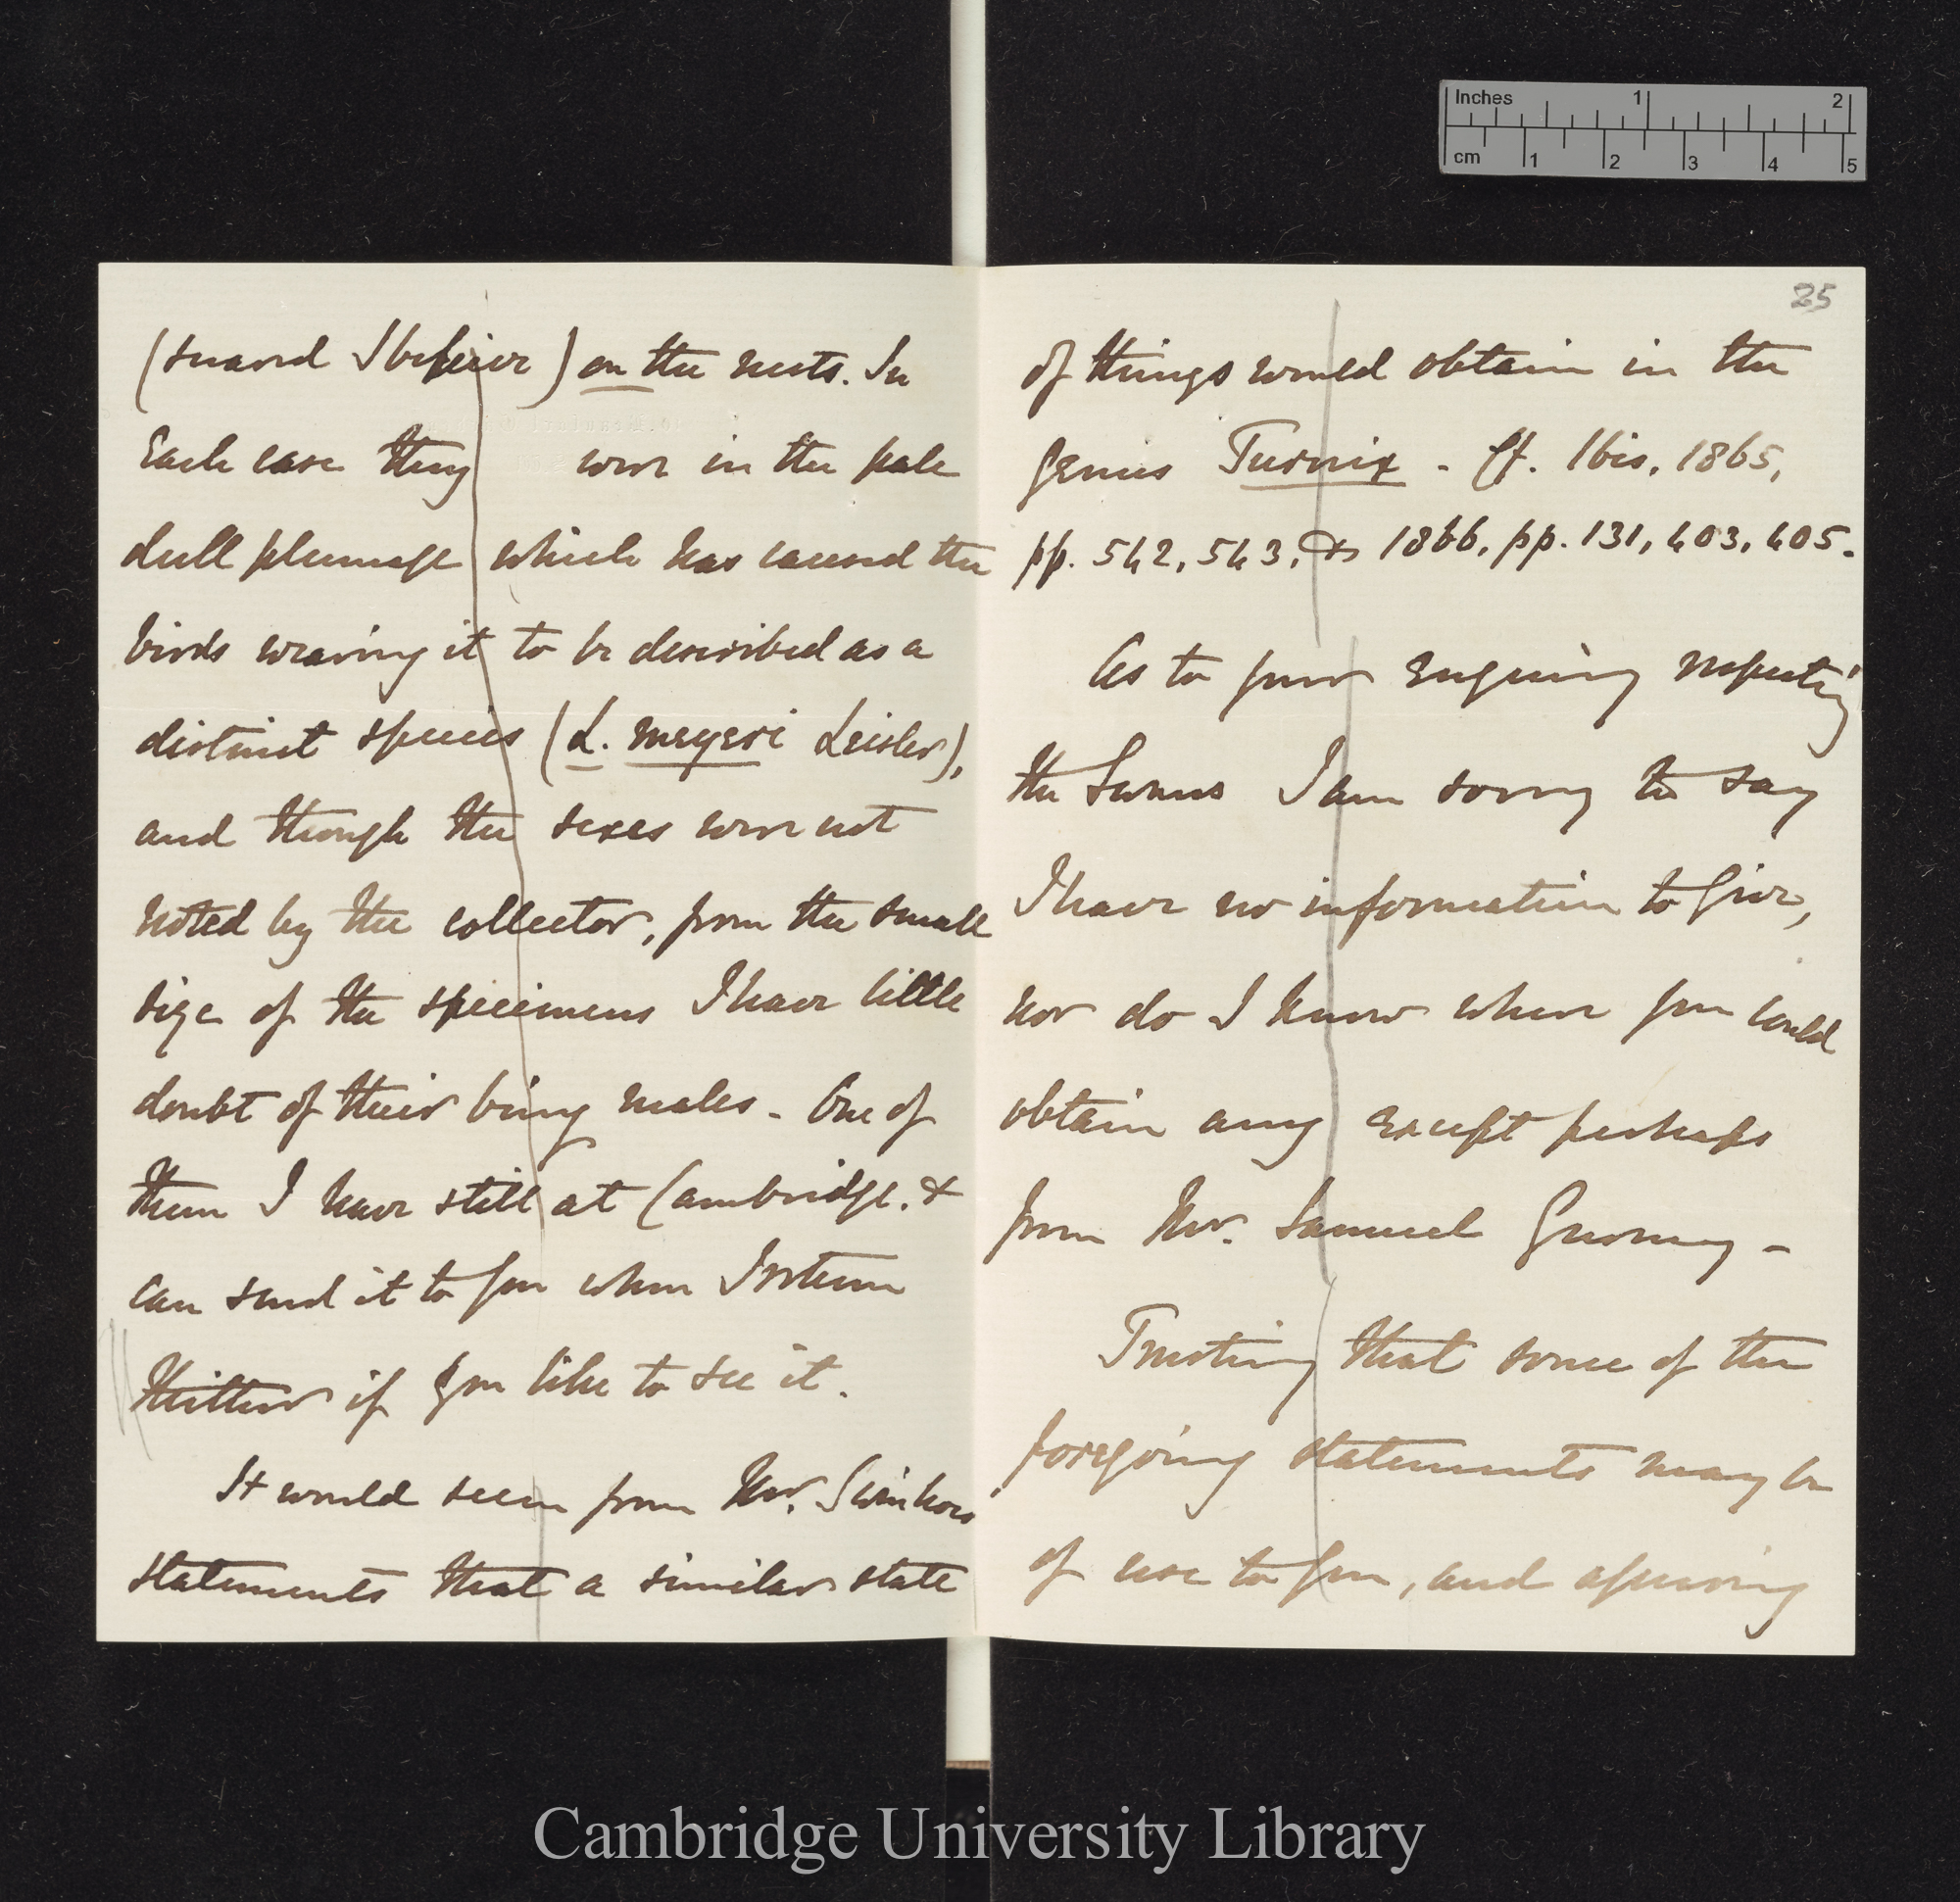 (snared I believe) on the nests. In
each case they were in the pale
dull plumage which has caused the
birds wearing it to be described as a
distinct species (L. meyeri Leisler),
and though the sexes were not
noted by the collector, from the small
size of the specimens I have little
doubt of their being males – One of
them I have still at Cambridge. &
can send it to you when I return
thither if you like to see it.
It would seem from Mr. Swinhoe's
statements that a similar state
25
of things would obtain in the
genus Turnix – Cf. Ibis, 1865,
pp. 542, 543, & 1866, pp. 131, 403, 405.
As to your enquiry respecting
the Swans I am sorry to say
I have no information to give,
nor do I know where you could
obtain any except perhaps
from Mr. Samuel Gurney –
Trusting that some of the
foregoing statements may be
of use to you, and assuring
Inches 1 2
cm 1 2 3 4 5
Cambridge University Library